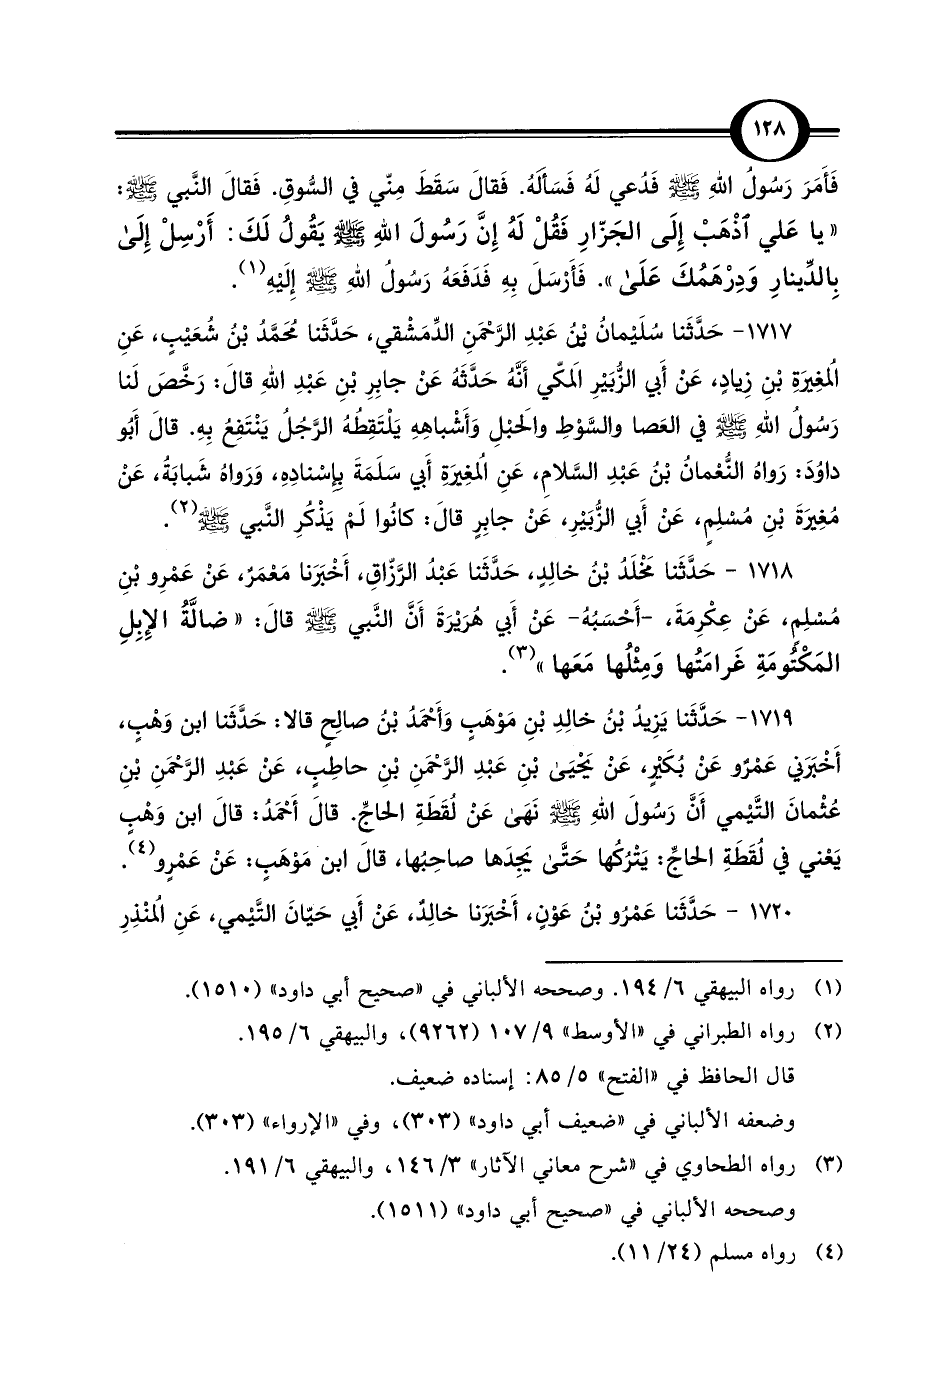 ١٢٨
فَأَمَرَ رَسُولُ اللهِ ﷺ فَدُعي لَهُ فَسَأَلَهُ. فَقالَ سَقَطَ مِنّي في السُّوقِ. فَقالَ النَّبي ﷺ:
« يا عَلي ٱذْهَبْ إِلَى الجَزّارِ فَقُلْ لَهُ إِنَّ رَسُولَ اللهِ ﷺ يَقُولُ لَكَ: أَرْسِلْ إِلَىٰ
بِالدِّينارِ وَدِرْهَمُكَ عَلَىٰ ». فَأَرْسَلَ بِهِ فَدَفَعَهُ رَسُولُ اللهِ ﷺ إِلَيْهِ(١).
١٧١٧- حَدَّثَنا سُلَيْمانُ بْنُ عَبْدِ الرَّحْمَنِ الدِّمَشْقي، حَدَّثَنا مُحَمَّدُ بْنُ شُعَيْبٍ، عَنِ
المُغِيرَةِ بْنِ زِيادٍ، عَنْ أَبي الزُّبَيْرِ المَكّي أَنَّهُ حَدَّثَهُ عَنْ جابِرِ بْنِ عَبْدِ اللهِ قالَ: رَخَّصَ لَنا
رَسُولُ اللهِ ﷺ في العَصا والسَّوْطِ والحَبْلِ وَأَشْباهِهِ يَلْتَقِطُهُ الرَّجُلُ يَنْتَفِعُ بِهِ. قالَ أَبُو
داوُدَ: رَواهُ النُّعْمانُ بْنُ عَبْدِ السَّلامِ، عَنِ المُغِيرَةِ أَبي سَلَمَةَ بِإِسْنادِهِ، وَرَواهُ شَبابَةُ، عَنْ
مُغِيرَةَ بْنِ مُسْلِمٍ، عَنْ أَبي الزُّبَيْرِ، عَنْ جابِرٍ قالَ: كانُوا لَمْ يَذْكُرِ النَّبي ﷺ(٢).
١٧١٨ - حَدَّثَنا مَخْلَدُ بْنُ خالِدٍ، حَدَّثَنا عَبْدُ الرَّزّاقِ، أَخْبَرَنا مَعْمَرٌ، عَنْ عَمْرِو بْنِ
مُسْلِمٍ، عَنْ عِكْرِمَةَ، -أَحْسَبُهُ- عَنْ أَبي هُرَيْرَةَ أَنَّ النَّبي ﷺ قالَ: « ضالَّةُ الإِبِلِ
المَكْتُومَةِ غَرامَتُها وَمِثْلُها مَعَها »(٣).
١٧١٩- حَدَّثَنا يَزِيدُ بْنُ خالِدِ بْنِ مَوْهَبٍ وَأَحْمَدُ بْنُ صالِحٍ قالا: حَدَّثَنا ابن وَهْبٍ،
أَخْبَرَني عَمْرٌو عَنْ بُكَيْرٍ، عَنْ يَحْيَىٰ بْنِ عَبْدِ الرَّحْمَنِ بْنِ حاطِبٍ، عَنْ عَبْدِ الرَّحْمَنِ بْنِ
عُثْمانَ التَّيْمي أَنَّ رَسُولَ اللهِ ﷺ نَهَىٰ عَنْ لُقَطَةِ الحاجِّ. قالَ أَحْمَدُ: قالَ ابن وَهْبٍ
يَعْني في لُقَطَةِ الحاجِّ: يَتْرُكُها حَتَّىٰ يَجِدَها صاحِبُها، قالَ ابن مَوْهَبٍ: عَنْ عَمْرٍو(٤).
١٧٢٠ - حَدَّثَنا عَمْرُو بْنُ عَوْنٍ، أَخْبَرَنا خالِدٌ، عَنْ أَبي حَيّانَ التَّيْمي، عَنِ المُنْذِرِ
(١) رواه البيهقي ٦/ ١٩٤. وصححه الألباني في «صحيح أبي داود» (١٥١٠).
(٢) رواه الطبراني في «الأوسط» ٩/ ١٠٧ (٩٢٦٢)، والبيهقي ٦/ ١٩٥.
قال الحافظ في «الفتح» ٥/ ٨٥: إسناده ضعيف.
وضعفه الألباني في «ضعيف أبي داود» (٣٠٣)، وفي «الإرواء» (٣٠٣).
(٣) رواه الطحاوي في «شرح معاني الآثار» ٣/ ١٤٦، والبيهقي ٦/ ١٩١.
وصححه الألباني في «صحيح أبي داود» (١٥١١).
(٤) رواه مسلم (١١/٢٤).